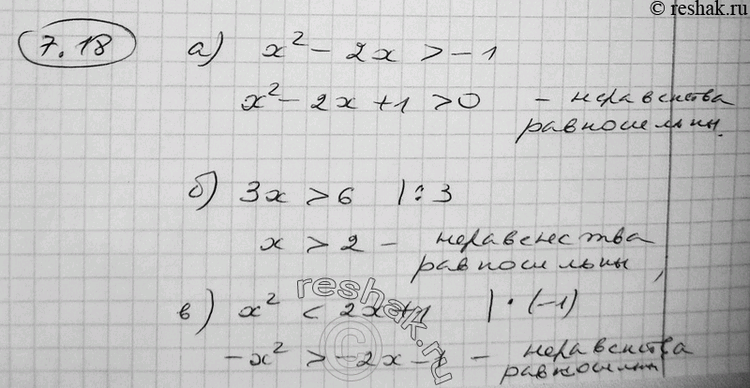 © reshak.ru
7.18 а) x² - 2x > -1
x² - 2x + 1 > 0 - неравенства
равносильны.
б) 3x > 6 | : 3
x > 2 - неравенства
равносильны,
в) x² < 2x + 1 | · (-1)
-x² > -2x - 1 - неравенства
равносильны
reshak.ru
©